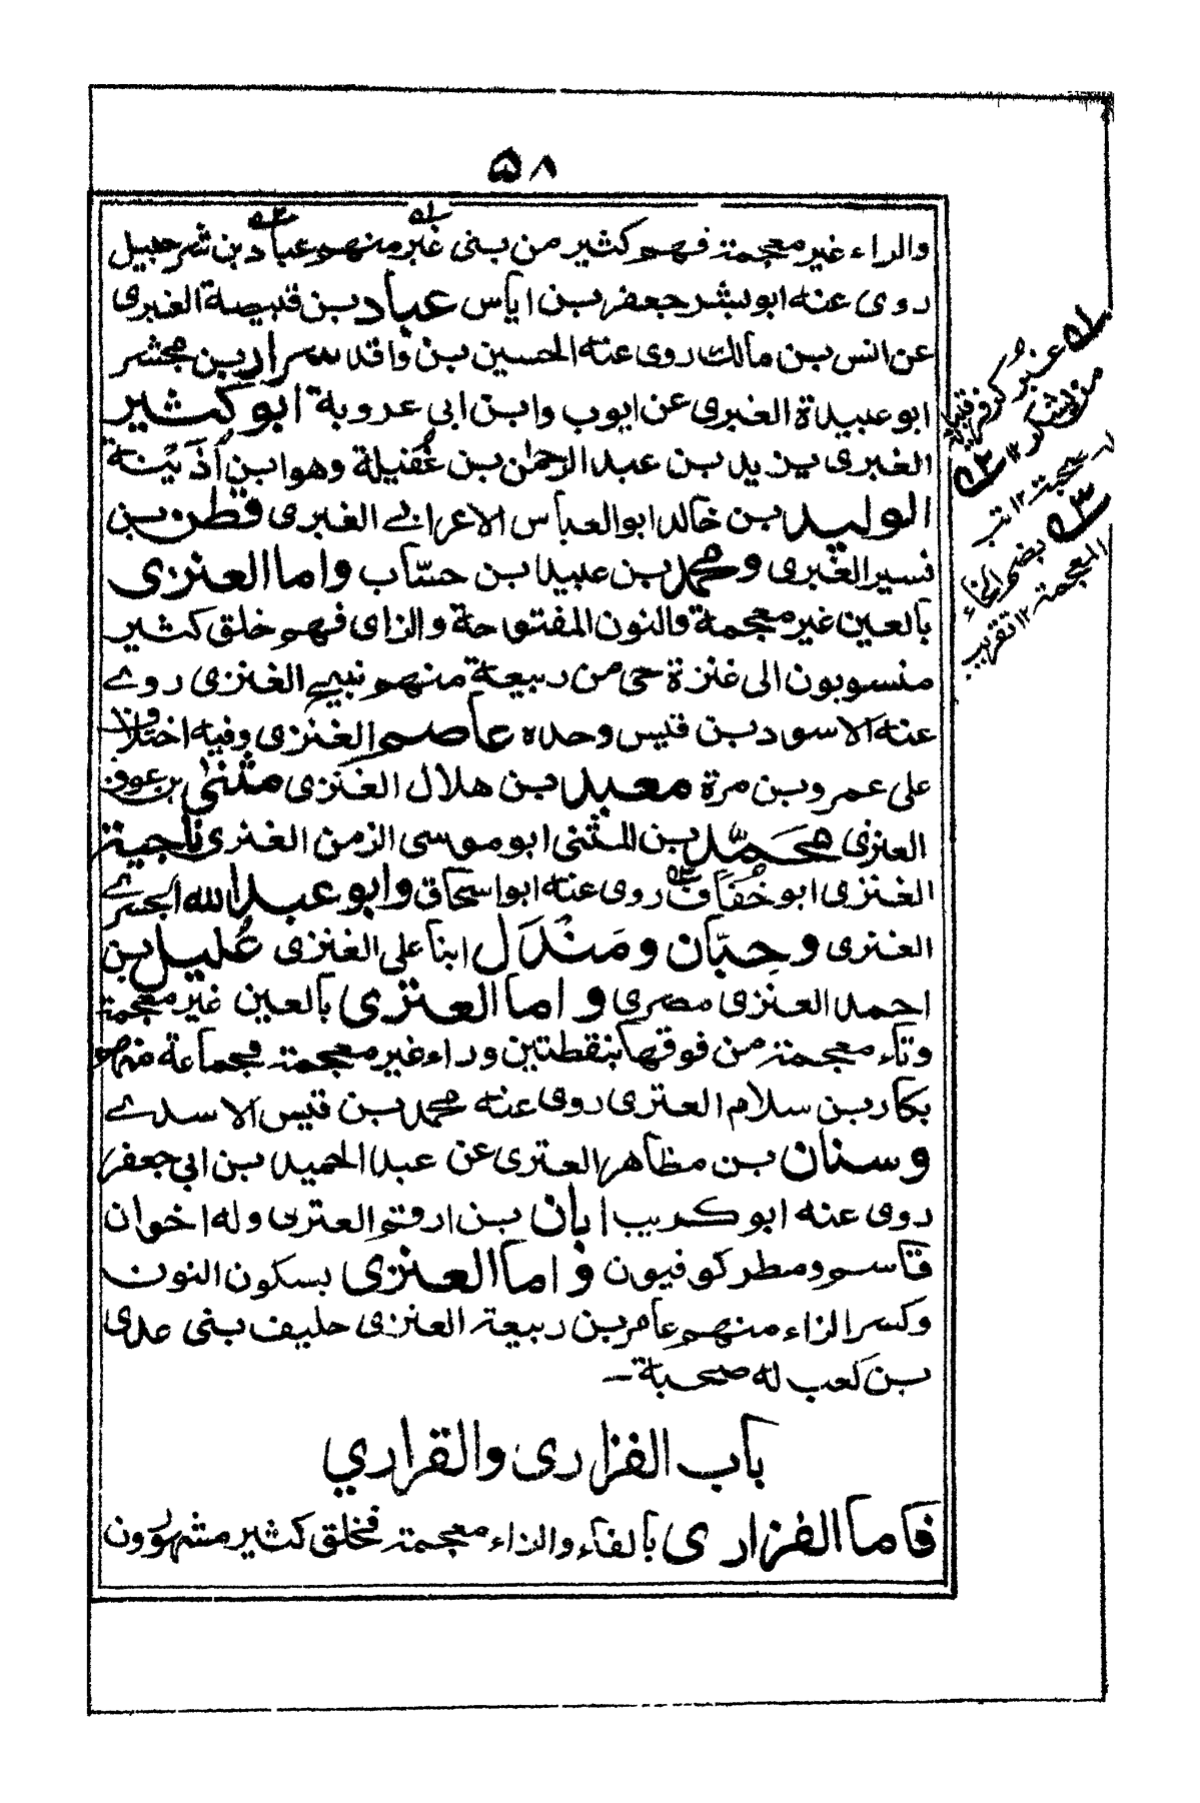 ۵۸
والراء غير معجمة فهم كثير من بنى غبر منهم عباد بن شرحبيل
روى عنه ابو بشر جعفر بن اياس عباد بن قبيصة الغبرى
عن انس بن مالك روى عنه الحسين بن واقد سرار بن مجشر
ابو عبيدة الغبرى عن ايوب وابن ابى عروبة ابو كثير
الغبرى يزيد بن عبد الرحمٰن بن غُفيلة وهو ابن اُذَيْنة
الوليد بن خالد ابو العباس الاعرابي الغبرى قطن بن
نسير الغبرى ومحمد بن عبيد ابن حسّاب واما العنزى
بالعين غير معجمة والنون المفتوحة والزاى فهم خلق كثير
منسوبون الى غنزة حى من ربيعة منهم نبيح الغنزى روے
عنه الاسود بن قيس وحده عاصم الغنزى وفيه اختلاف
على عمرو بن مرة معبد بن هلال الغنزى مثنىٰ بن عوف
العنزى محَمّد بن المثنى ابو موسى الزمن الغنزى ناجية
الغنزى ابو خُفَاف روى عنه ابو اسحاق وابو عبد الله الجسرے
العنزى وحِبّان ومَنْدَل ابنا على الغنزى عُليل بن
احمد العنزى مصرى واما العنزى بالعين غير معجمة
وتاء معجمة من فوقها بنقطتين وراء غير معجمة فجماعة منهم
بكار بن سلام العترى روى عنه محمد بن قيس الاسدے
وسنان بن مظاهر العترى عن عبد الحميد بن ابى جعفر
روى عنه ابو كريب ابان بن ارقم العترى وله اخوان
قاسم ومطر كوفيون واما العنزى بسكون النون
وكسر الزاء منهم عامر بن ربيعة العنزى حليف بنى عدى
بن كعب له صحبة ـ
باب الفزارى والقراري
فاما الفزارى بالفاء والزاء معجمة فخلق كثير مشهورون
لـه غُبَر كزفر قبيلة
من يشكر ۱۲
لـه صحبة ۱۲ تب
بضم الخاء
المعجمة ۱۲ تقريب